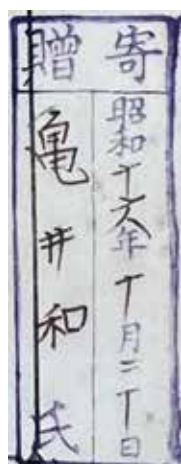 寄贈
昭和十六年十月二十日
亀井和氏